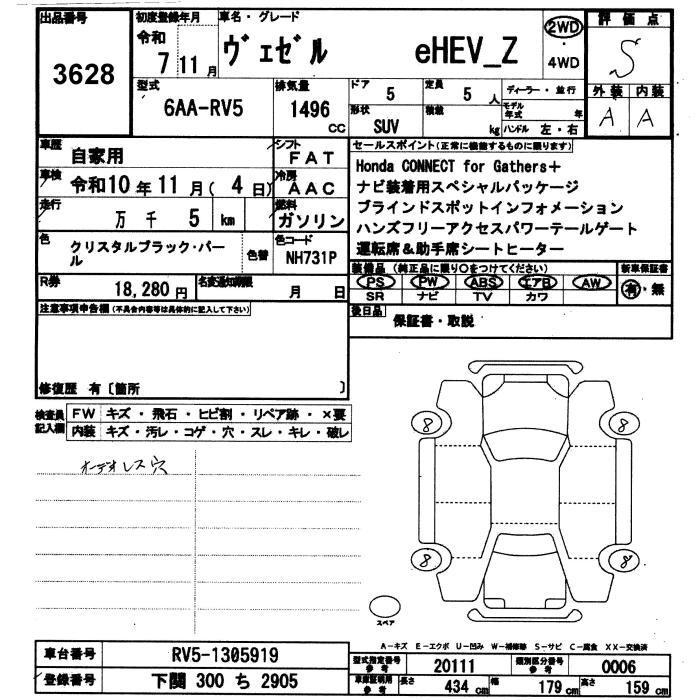 出品番号 3628
初度登録年月 令和 7 11 月
車名・グレード ヴェゼル eHEV_Z
2WD ・ 4WD
評価点 S
外装 内装
A A
型式 6AA-RV5
排気量 1496 CC
ドア 5
定員 5 人
形状 SUV
積載 kg
ディーラー・並行
モデル年式 年
ハンドル 左・右
車歴 自家用
シフト FAT
車検 令和10年11月(4日)
冷房 AAC
走行 万 千 5 km
燃料 ガソリン
色 クリスタルブラック・パール
色替
色コード NH731P
R券 18,280円
名変通知期限 月 日
セールスポイント(正常に機能するものに限ります)
Honda CONNECT for Gathers+
ナビ装着用スペシャルパッケージ
ブラインドスポットインフォメーション
ハンズフリーアクセスパワーテールゲート
運転席&助手席シートヒーター
装備品(純正品に限り○をつけてください)
新車保証書
PS PW ABS エアB AW
有・無
SR ナビ TV カワ
後日品 保証書・取説
注意事項申告欄(不具合内容等は具体的に記入して下さい)
修復歴 有〔箇所 〕
検査員記入欄
FW キズ・飛石・ヒビ割・リペア跡・×要
内装 キズ・汚レ・コゲ・穴・スレ・キレ・破レ
オーデオレス穴
8 8
8 8
スペア
A-キズ E-エクボ U-凹み W-補修跡 S-サビ C-腐食 XX-交換済
車台番号 RV5-1305919
登録番号 下関 300 ち 2905
型式指定番号 参考 20111
類別区分番号 参考 0006
車庫証明用 参考 長さ 434 cm 幅 179 cm 高さ 159 cm